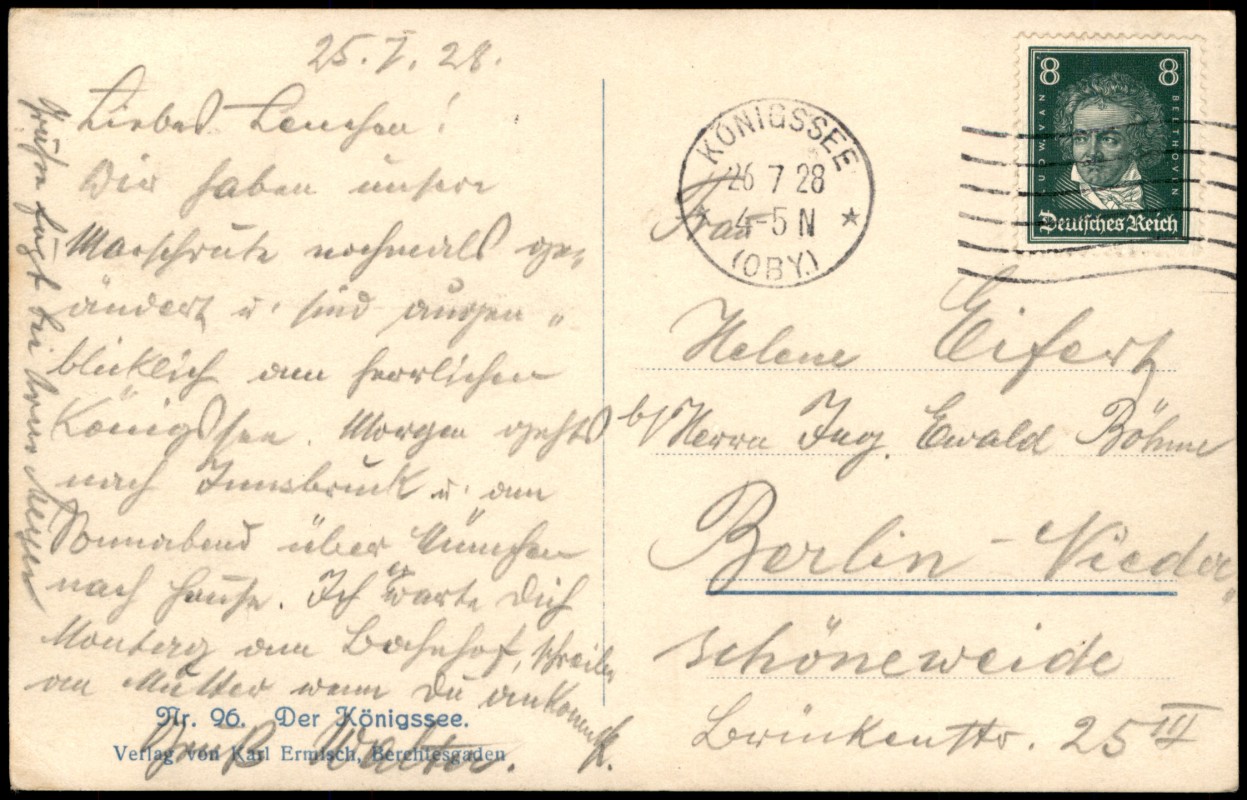 25.7.28.
Liebes Lenchen!
Wir haben unsere
Marschrute nochmals ge-
ändert u. sind augen-
blicklich am herrlichen
Königssee. Morgen gehts
nach Innsbruck u. am
Sonnabend über München
nach Hause. Ich erwarte Dich
Montag am Bahnhof, schreibe
an Mutter wenn Du ankommst.
Gruß Walter.
Grüße
Nr. 96. Der Königssee.
Verlag von Karl Ermisch, Berchtesgaden
KÖNIGSSEE
26 7 28
4-5 N
(OBY.)
8 8
LUDW. VAN BEETHOVEN
Deutsches Reich
Frau
Helene Eifert
b/ Herrn Ing. Ewald Böhme
Berlin - Nieder-
schöneweide
Brückenstr. 25 III